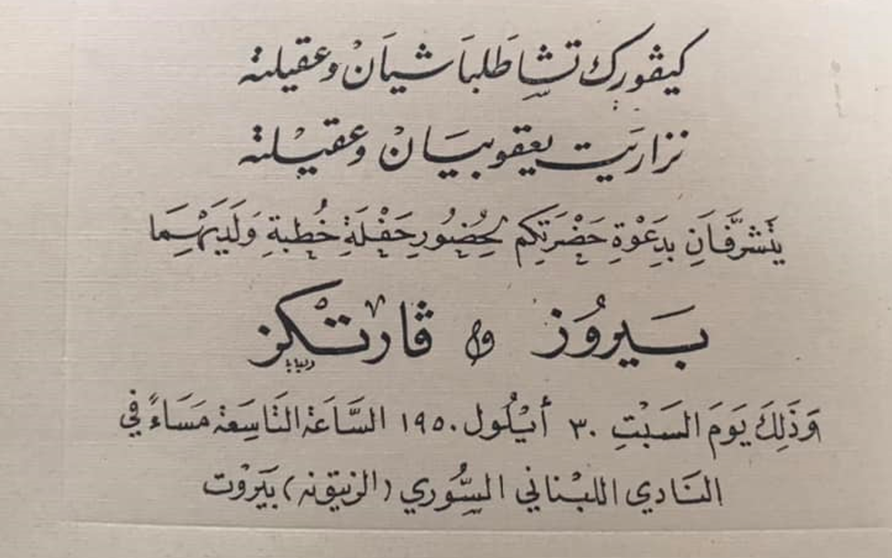 كيڤورك تشاطلباشيان وعقيلته
نزاريت يعقوبيان وعقيلته
يَتَشَرَّفَانِ بِدَعْوَةِ حَضْرَتِكُم لِحُضُورِ حَفْلَةِ خُطْبَةِ وَلَدَيْهِمَا
بَيرُوز و ڤارتْكز
وَذَلِكَ يَومَ السَبْتِ ٣٠ أَيْلُول ١٩٥٠ السَّاعَة التَاسِعَة مَسَاءً في
النَادي اللبْنَاني السُّوري (الزيتونه) بَيْرُوت